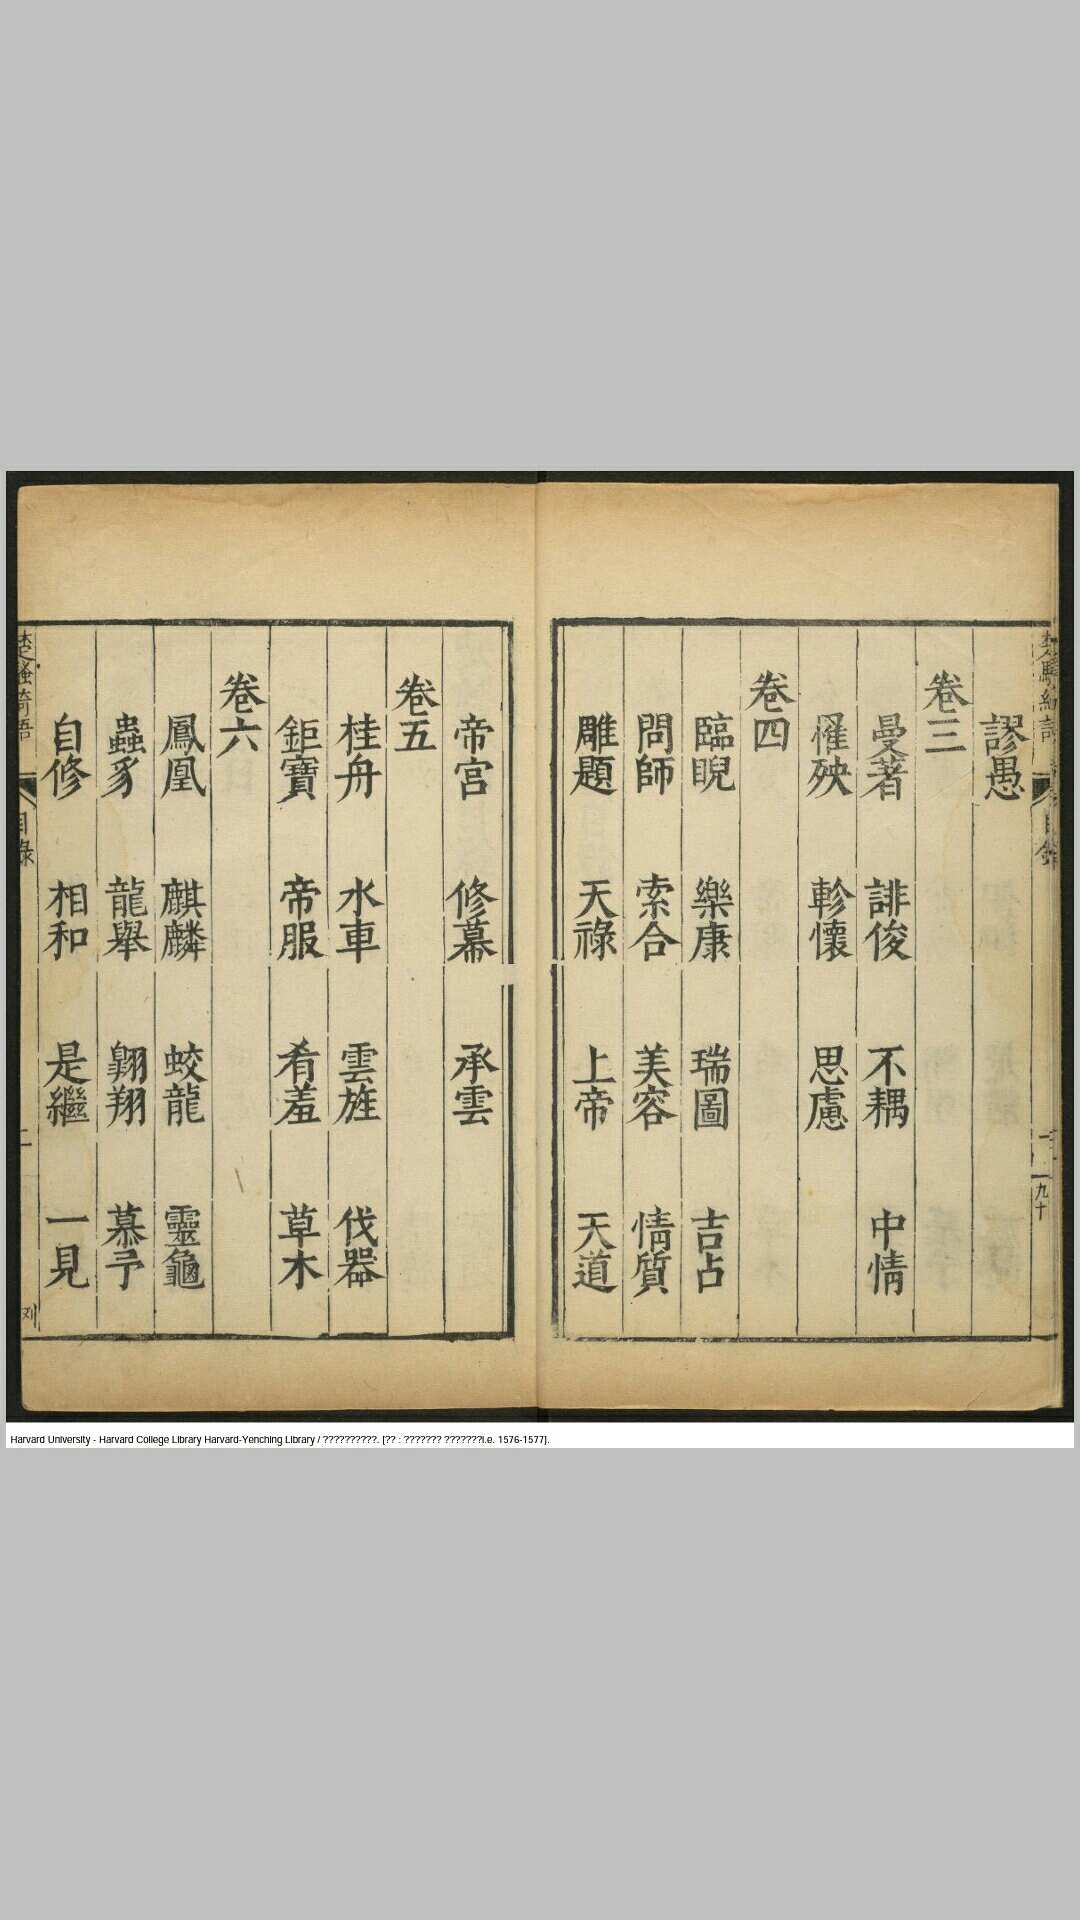 謬愚
卷三
曼著 誹俊 不耦 中情
罹殃 軫懷 思慮
卷四
臨睨 樂康 瑞圖 吉占
問師 索合 美容 情質
雕題 天祿 上帝 天道
帝宮 修幕 承雲
卷五
桂舟 水車 雲旌 伐器
鉅寶 帝服 肴羞 草木
卷六
鳳凰 麒麟 蛟龍 靈龜
蟲豸 龍舉 翺翔 慕予
自修 相和 是繼 一見
目錄
Harvard University - Harvard College Library Harvard-Yenching Library / ??????????. [?? : ??????? ???????I.e. 1576-1577].